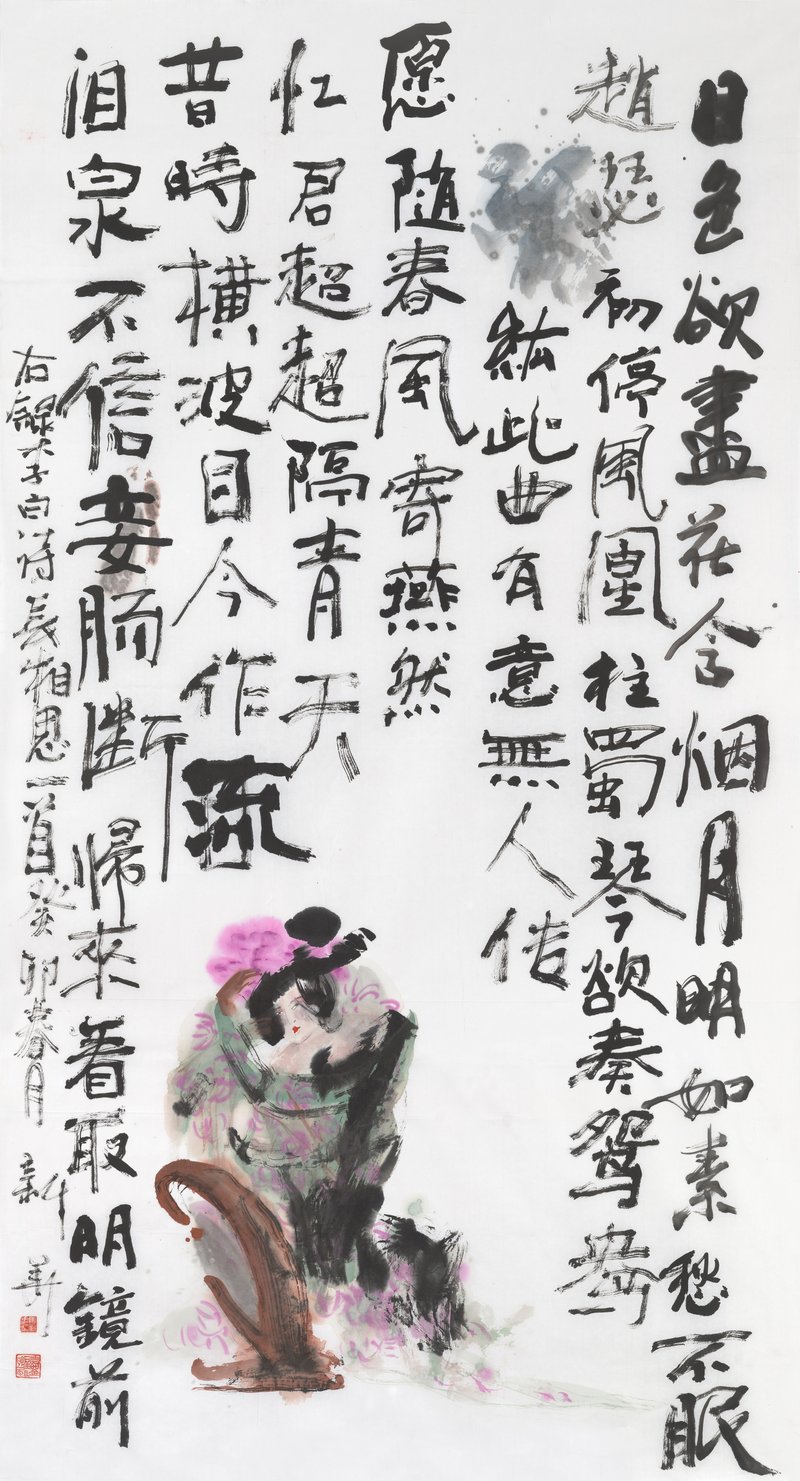 日色欲盡花含烟月明如素愁不眠
趙瑟初停鳳凰柱蜀琴欲奏鴛鴦
絃此曲有意無人传
愿随春風寄燕然
忆君超超隔青天
昔時横波目今作流
泪泉不信妾肠断歸來看取明鏡前
右録李白诗長相思一首癸卯春月 新